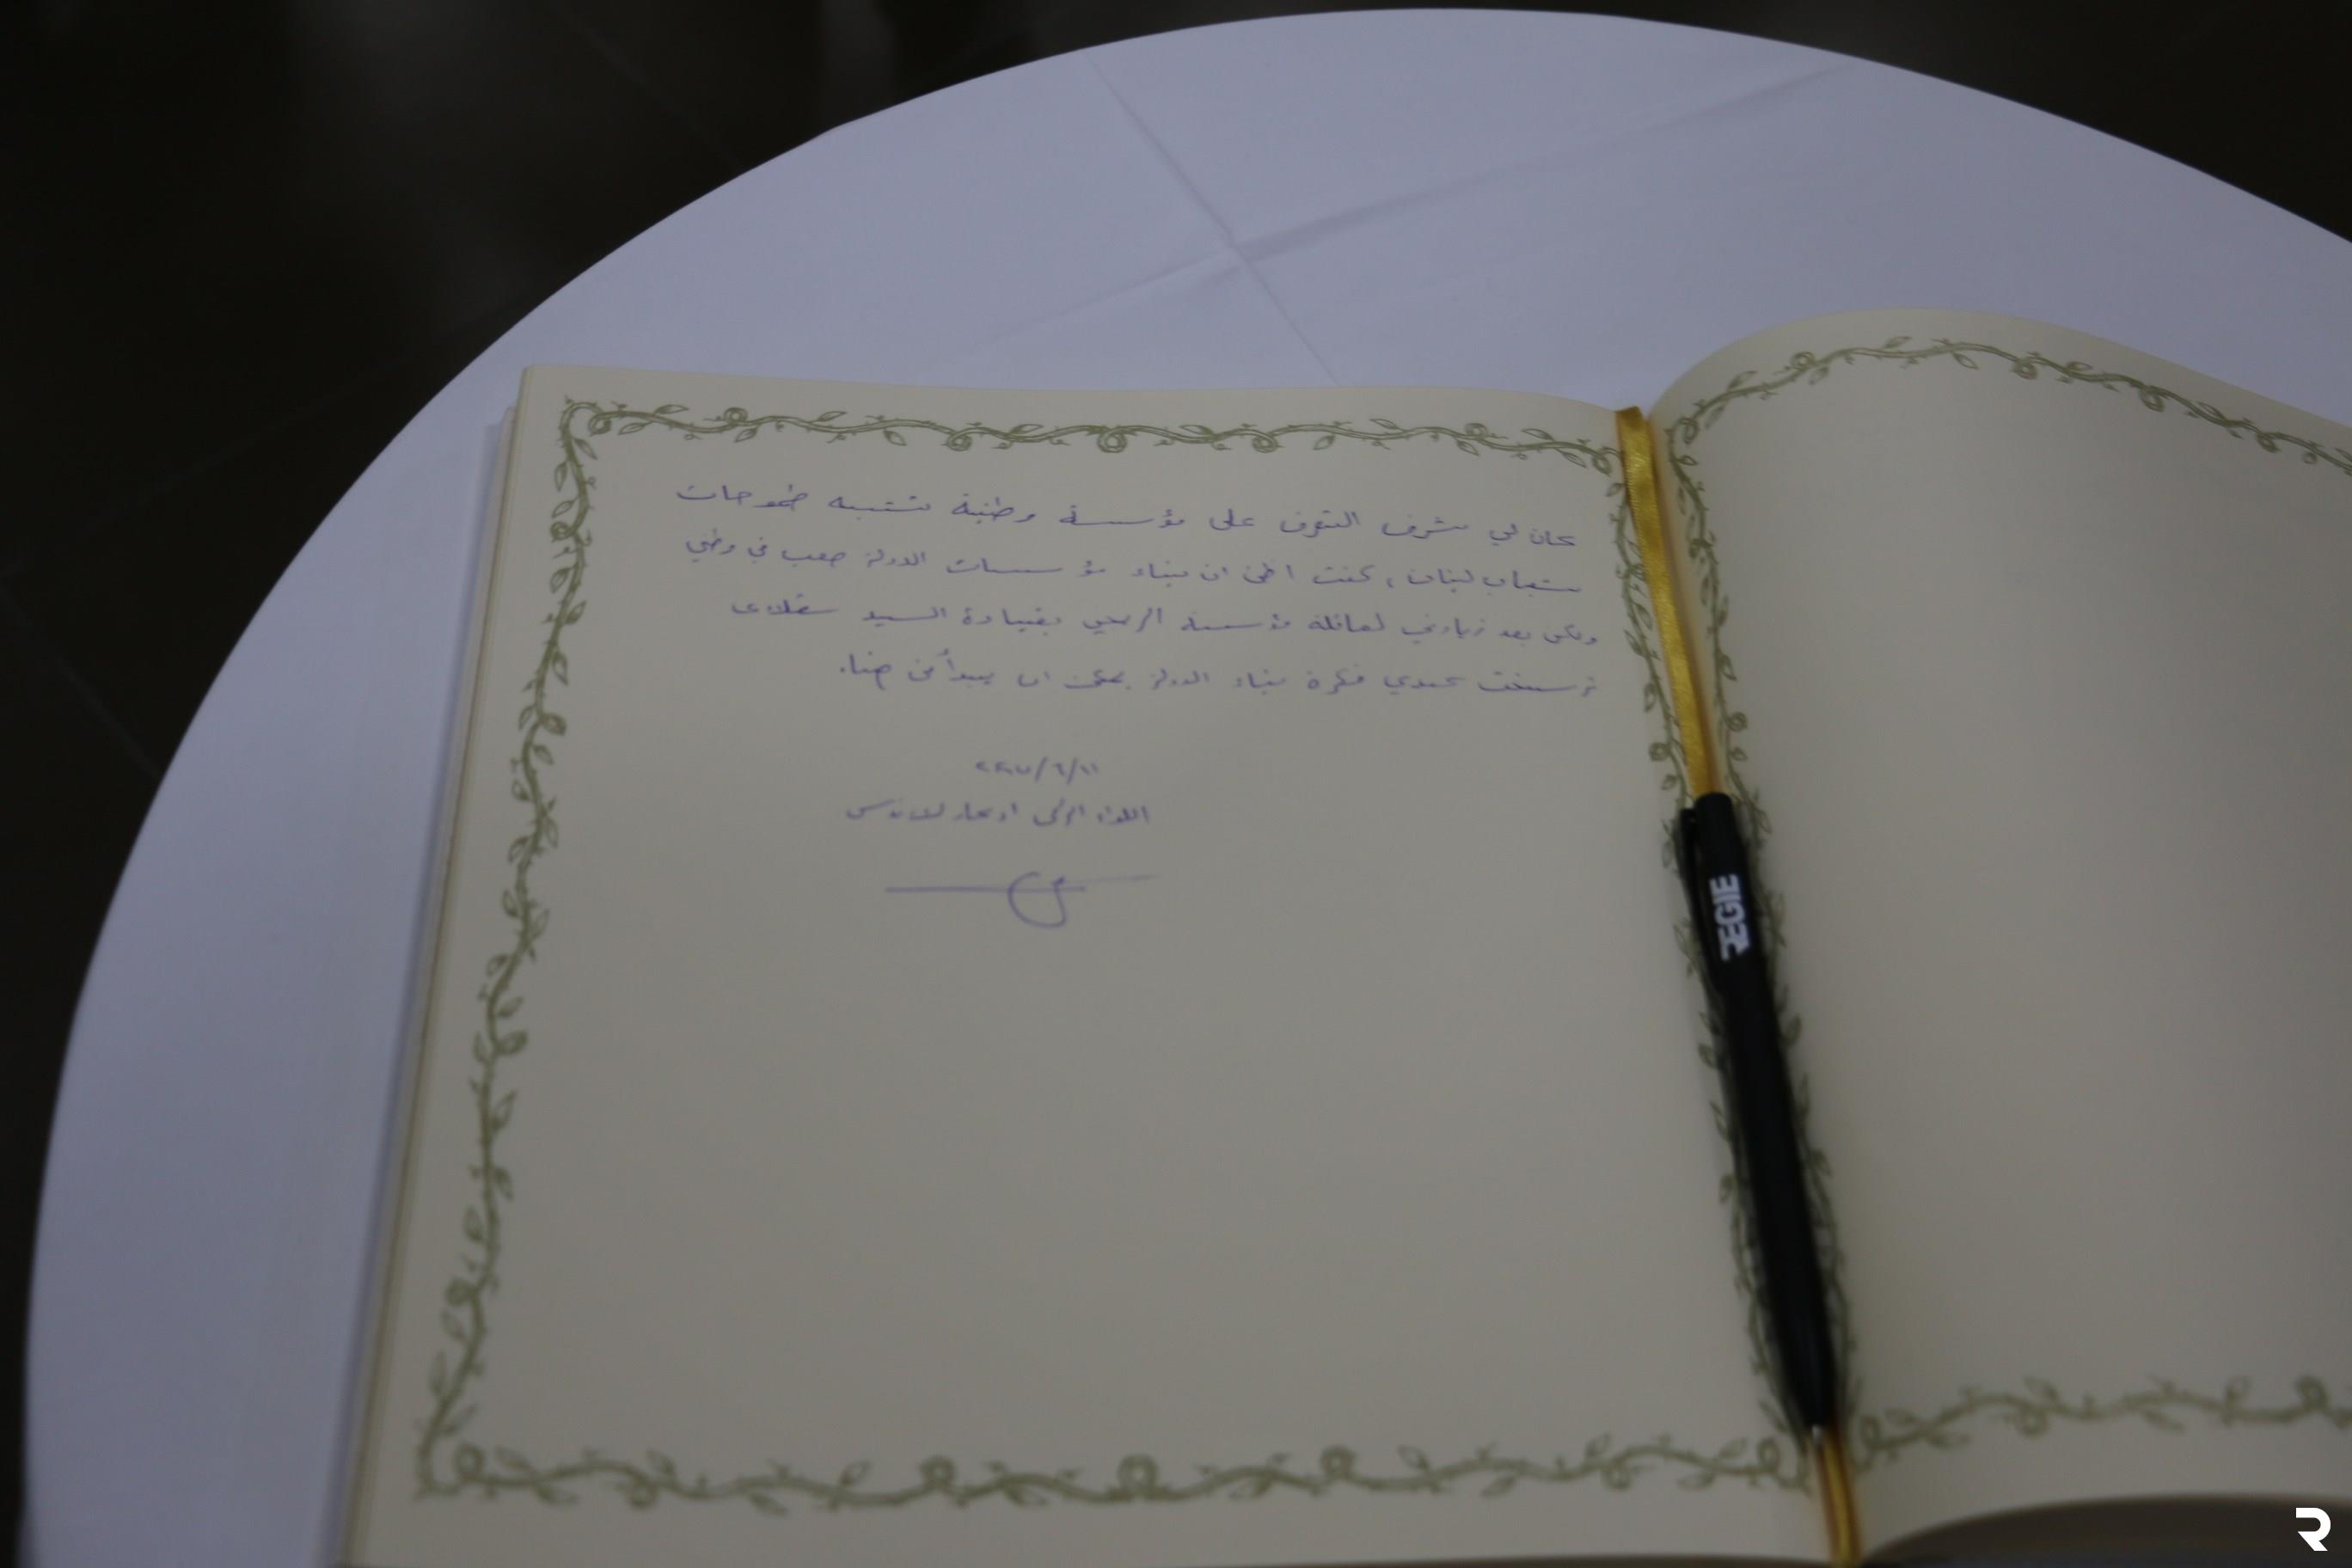 كان لي شرف التعرف على مؤسسة وطنية تشبه طموحات
شباب لبنان، كنت اظن ان بناء مؤسسات الدولة صعب في وطني
ولكن بعد زيارتي لعائلة مؤسسة الريجي بقيادة السيد سقلاوي
ترسخت عندي فكرة بناء الدولة يمكن ان يبدأ من هنا.
اللواء الركن ادغار لاوندس
REGIE